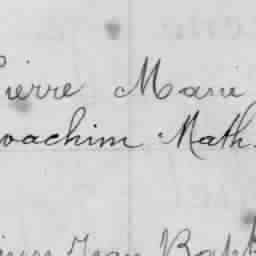 Pierre Marie
Joachim Math.
Jean Bapt